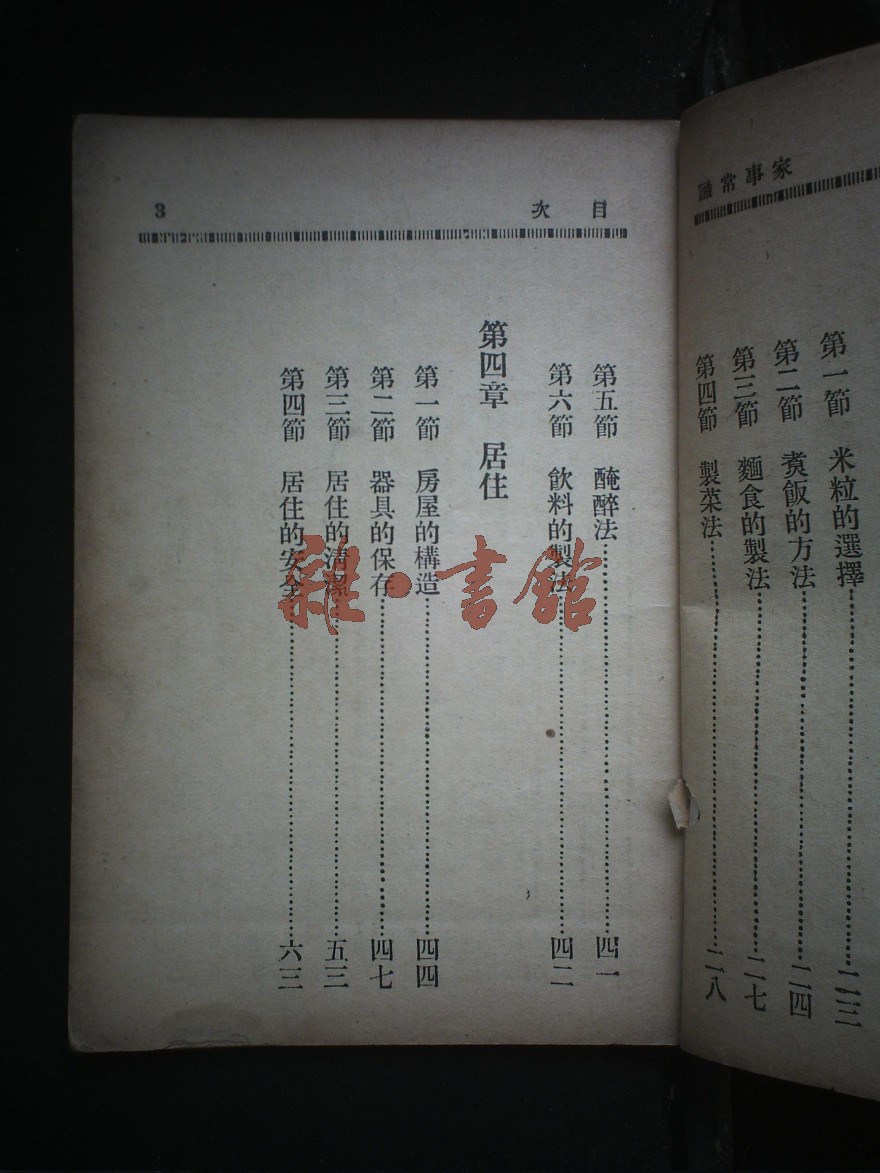 家事常識
第一節　米粒的選擇……二三
第二節　煑飯的方法……二四
第三節　麵食的製法……二七
第四節　製菜法……二八
目次
3
第五節　醃醉法……四一
第六節　飲料的製法……四二
第四章　居住
第一節　房屋的構造……四四
第二節　器具的保存……四七
第三節　居住的清潔……五三
第四節　居住的安全……六三
雜·書館